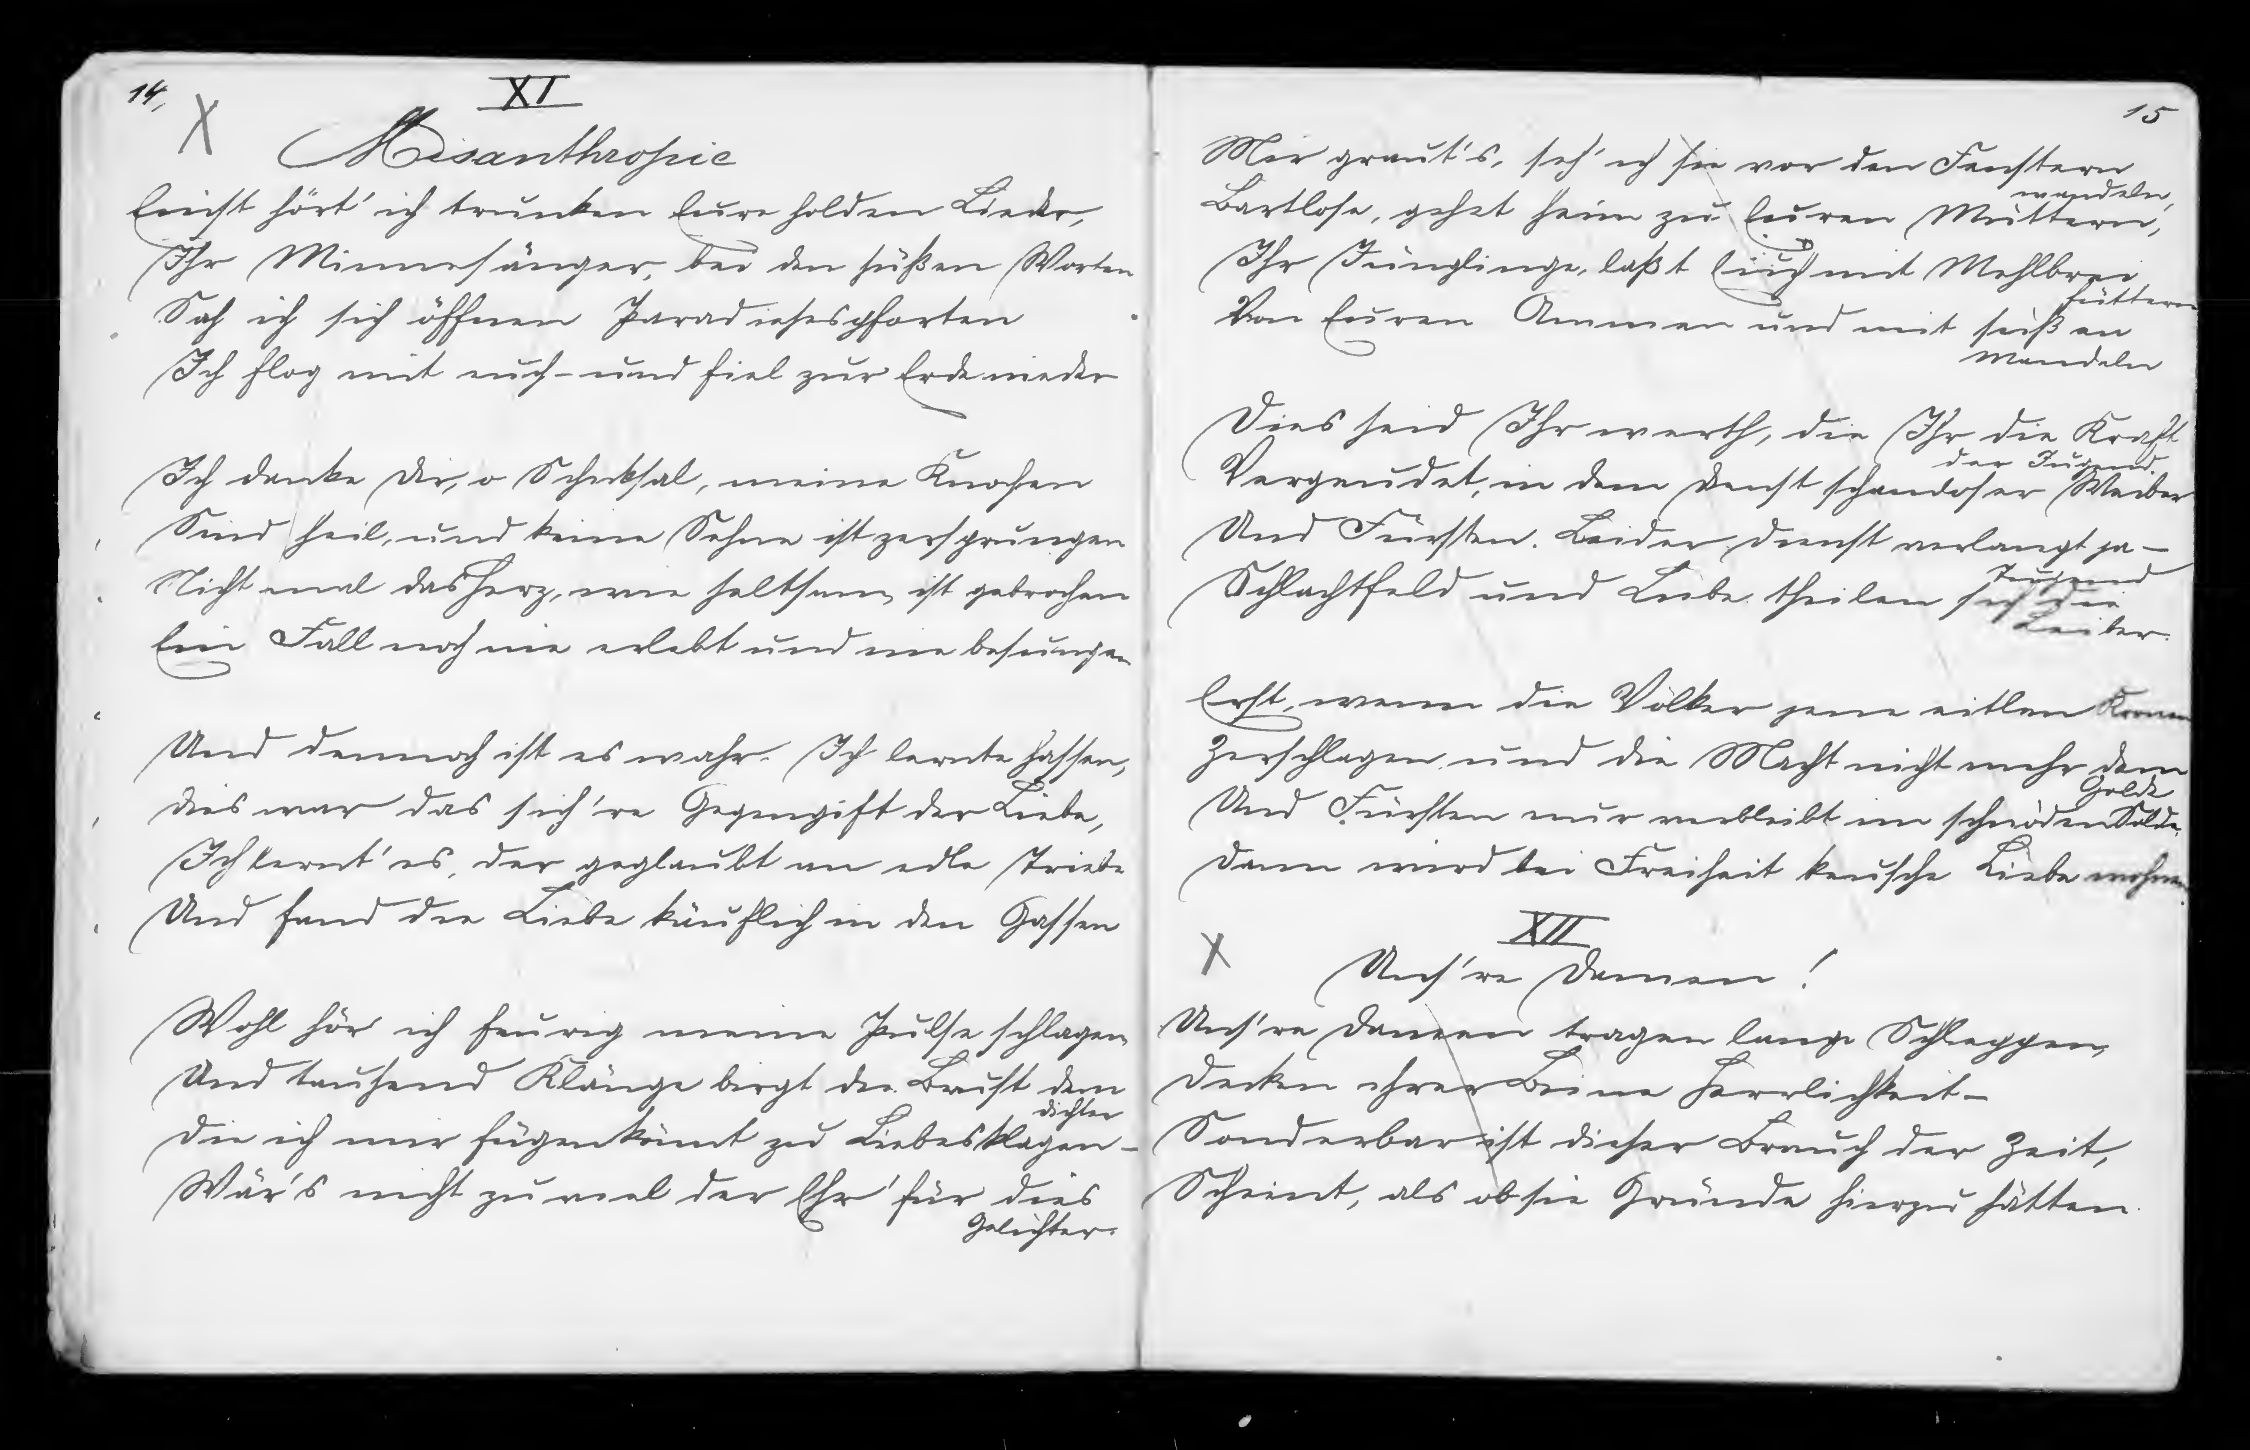 14,
XI
X
Misanthropie
Einst hört' ich trunken Eure holden Lieder,
Ihr Minnesänger, bei den süßen Worten
Sah ich sich öffnen Paradiesespforten
Ich flog mit euch - und fiel zur Erde nieder
Ich danke Dir, o Schicksal, meine Knochen
Sind heil, und keine Sehne ist zersprungen
Nicht mal das Herz, wie seltsam, ist gebrochen
Ein Fall noch nie erlebt und nie besungen
Und dennoch ist es wahr. Ich lernte hassen,
Dies war das sich're Gegengift der Liebe,
Ich lernt' es, der geglaubt an edle Triebe
Und fand die Liebe käuflich in den Gassen
Wohl hör ich feurig meine Pulse schlagen
Und tausend Klänge birgt die Brust dem
Dichter
Die ich mir fügen könnt zu Liebesklagen -
Wär's nicht zu viel der Ehr' für dies
Gelichter.
15
Mir graut's, seh' ich sie vor den Fenstern
wandeln,
Bartlose, gehet heim zu Euren Müttern,
Ihr Jünglinge, laßt Euch mit Mehlbrei
füttern
Von Euren Ammen und mit süßen
Mandeln
Dies seid Ihr werth, die Ihr die Kraft
der Jugend
Vergeudet, in dem Dienst schamloser Weiber
Und Fürsten. Beider Dienst verlangt ja -
Tugend
Schlachtfeld und Liebe theilen sich die
Leiber.
Erst, wenn die Völker jene eitlen Kronen
Zerschlagen und die Macht nicht mehr dem
Golde
Und Fürsten nur verbleibt im schnöden Solde,
Dann wird bei Freiheit keusche Liebe wohnen.
XII
X
Uns're Damen!
Uns're Damen tragen lange Schleppen,
Decken ihrer Beine Herrlichkeit -
Sonderbar ist dieser Brauch der Zeit,
Scheint, als ob sie Gründe hierzu hätten.